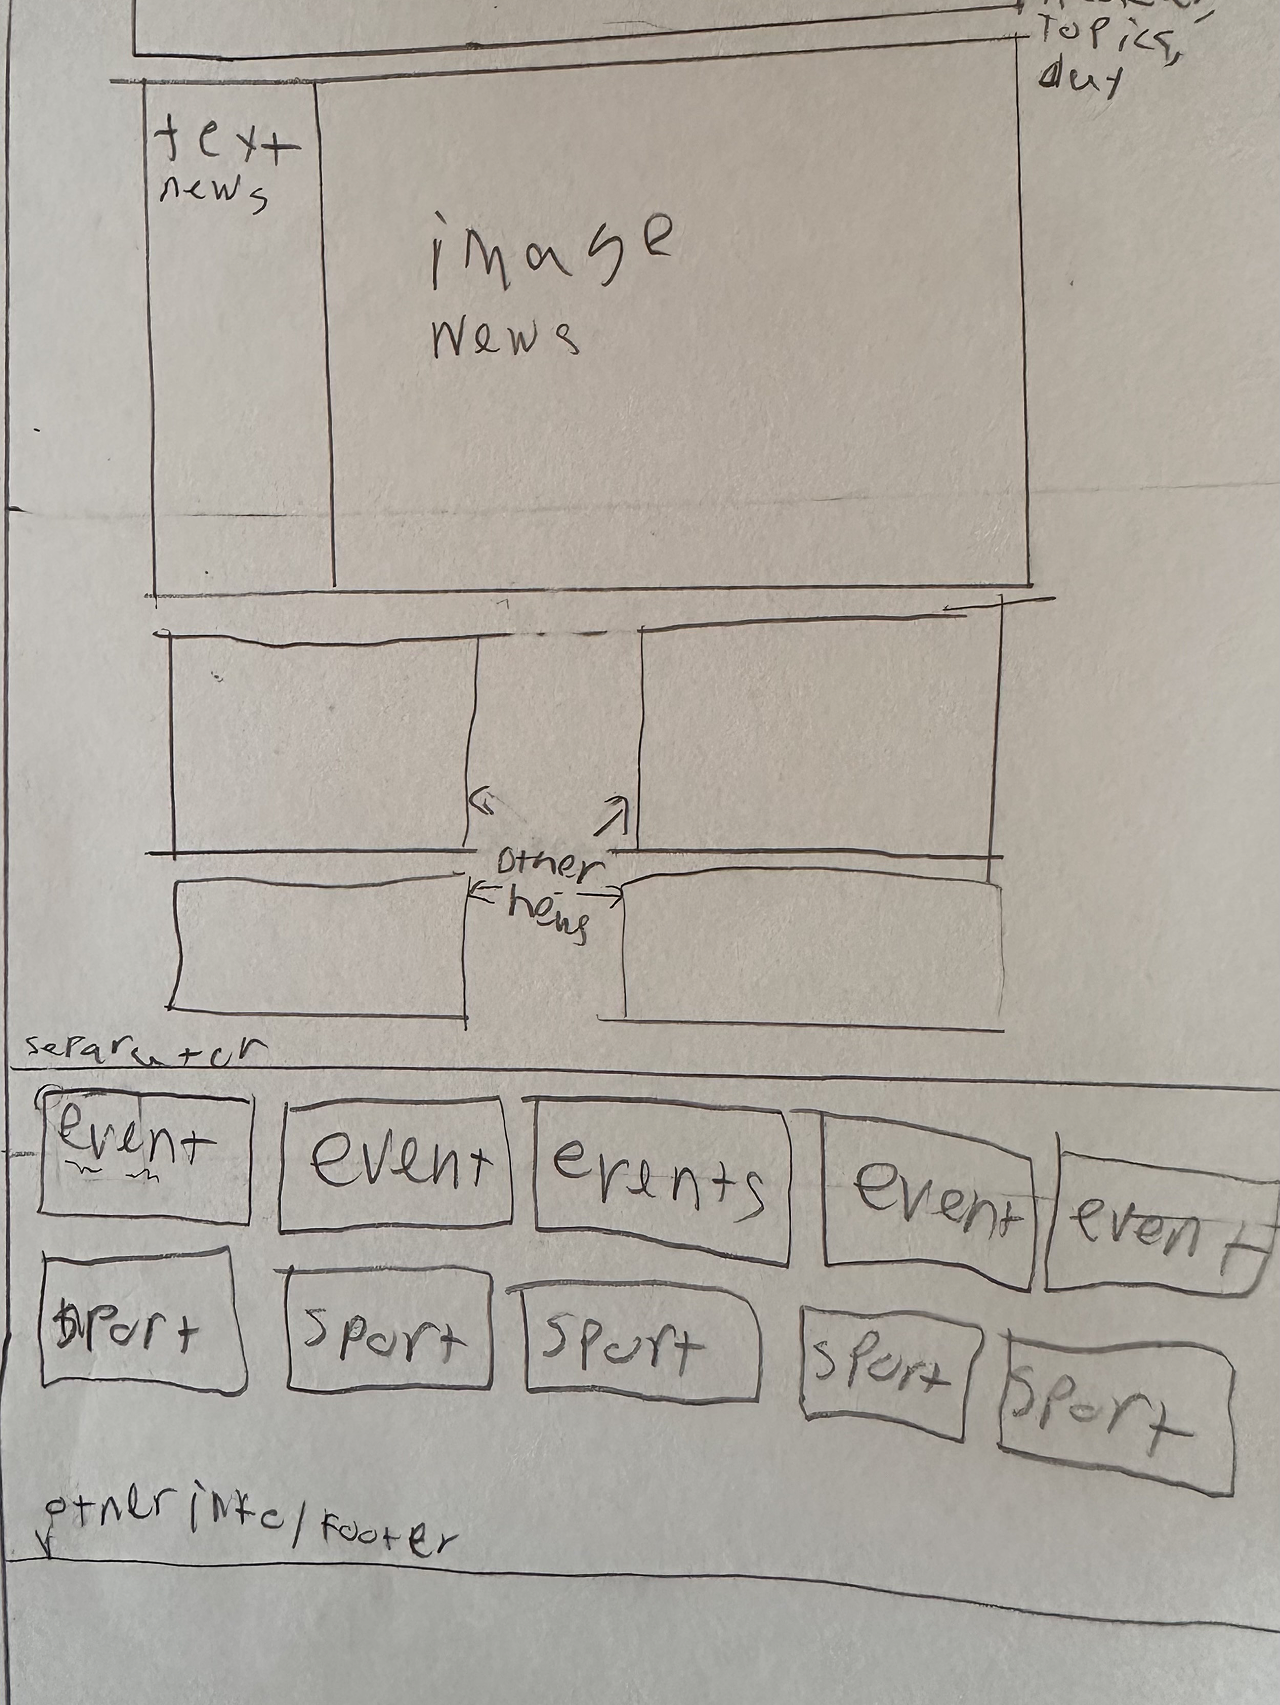 Topics,
day
text
news
image
News
other
news
separator
event
event
events
event
event
sport
sport
sport
sport
sport
other info/footer